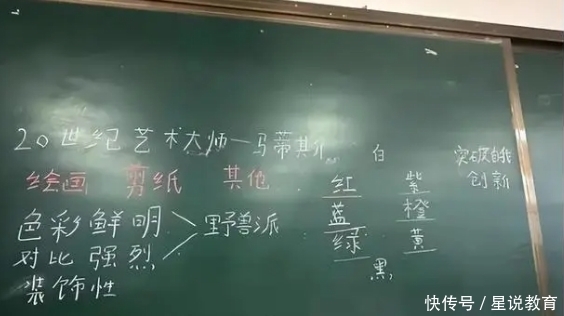 20世纪艺术大师—马蒂其
白
突破自我
创新
绘画 剪纸 其他
红 紫
蓝 橙
绿 黄
黑
色彩鲜明
对比强烈
野兽派
装饰性
快传号/星说教育